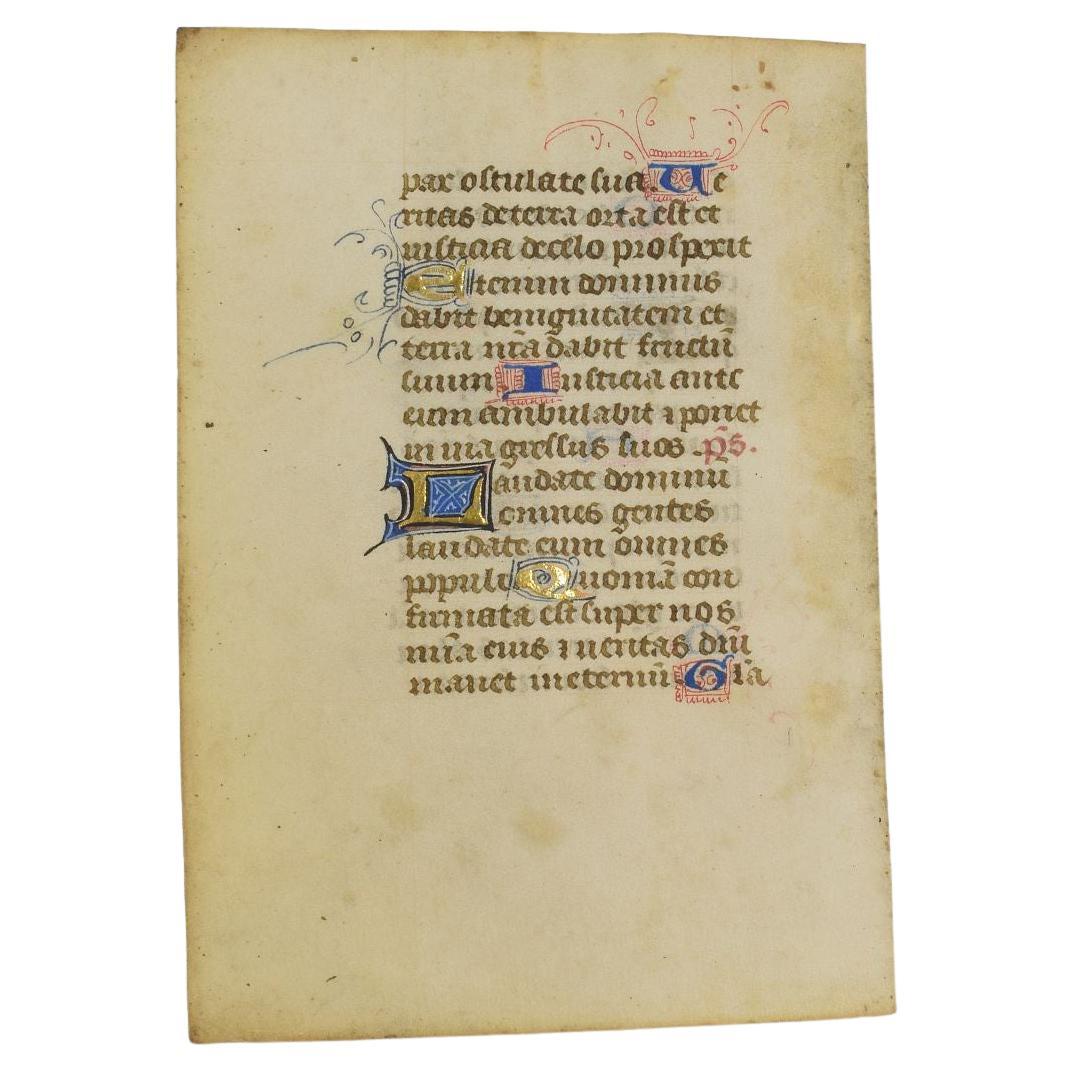 pax osculate sunt. Ue
ritas de terra orta est et
iusticia de celo prospexit
Etenim dominus
dabit benignitatem et
terra nr̄a dabit fructū
suum Iusticia ante
eum ambulabit ⁊ ponet
in uia gressus suos . p̄s.
Laudate dominū
omnes gentes
laudate eum om̄nes
populi Quoniā con
firmata est super nos
mīa eius ⁊ ueritas dm̄i
manet in eternū Glā